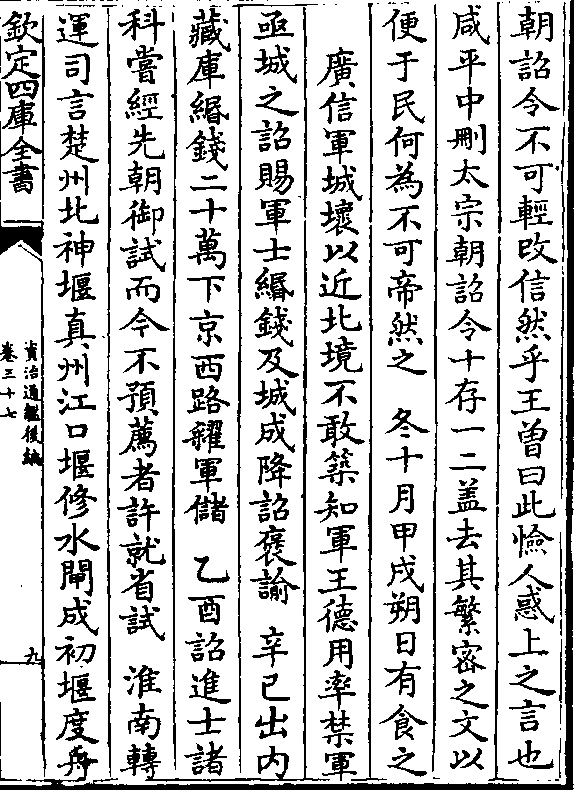 朝詔令不可輕改信然乎王曾曰此憸人惑上之言也
咸平中刪太宗朝詔令十存一二盖去其繁密之文以
便于民何為不可帝然之　冬十月甲戌朔日有食之
廣信軍城壞以近北境不敢築知軍王德用率禁軍
亟城之詔賜軍士緡錢及城成降詔褒諭　辛巳出内
藏庫緡錢二十萬下京西路糴軍儲　乙酉詔進士諸
科嘗經先朝御試而今不預薦者許就省試　淮南轉
運司言楚州北神堰真州江口堰修水閘成初堰度舟
欽定四庫全書
資治通鑑後編
卷三十七
九